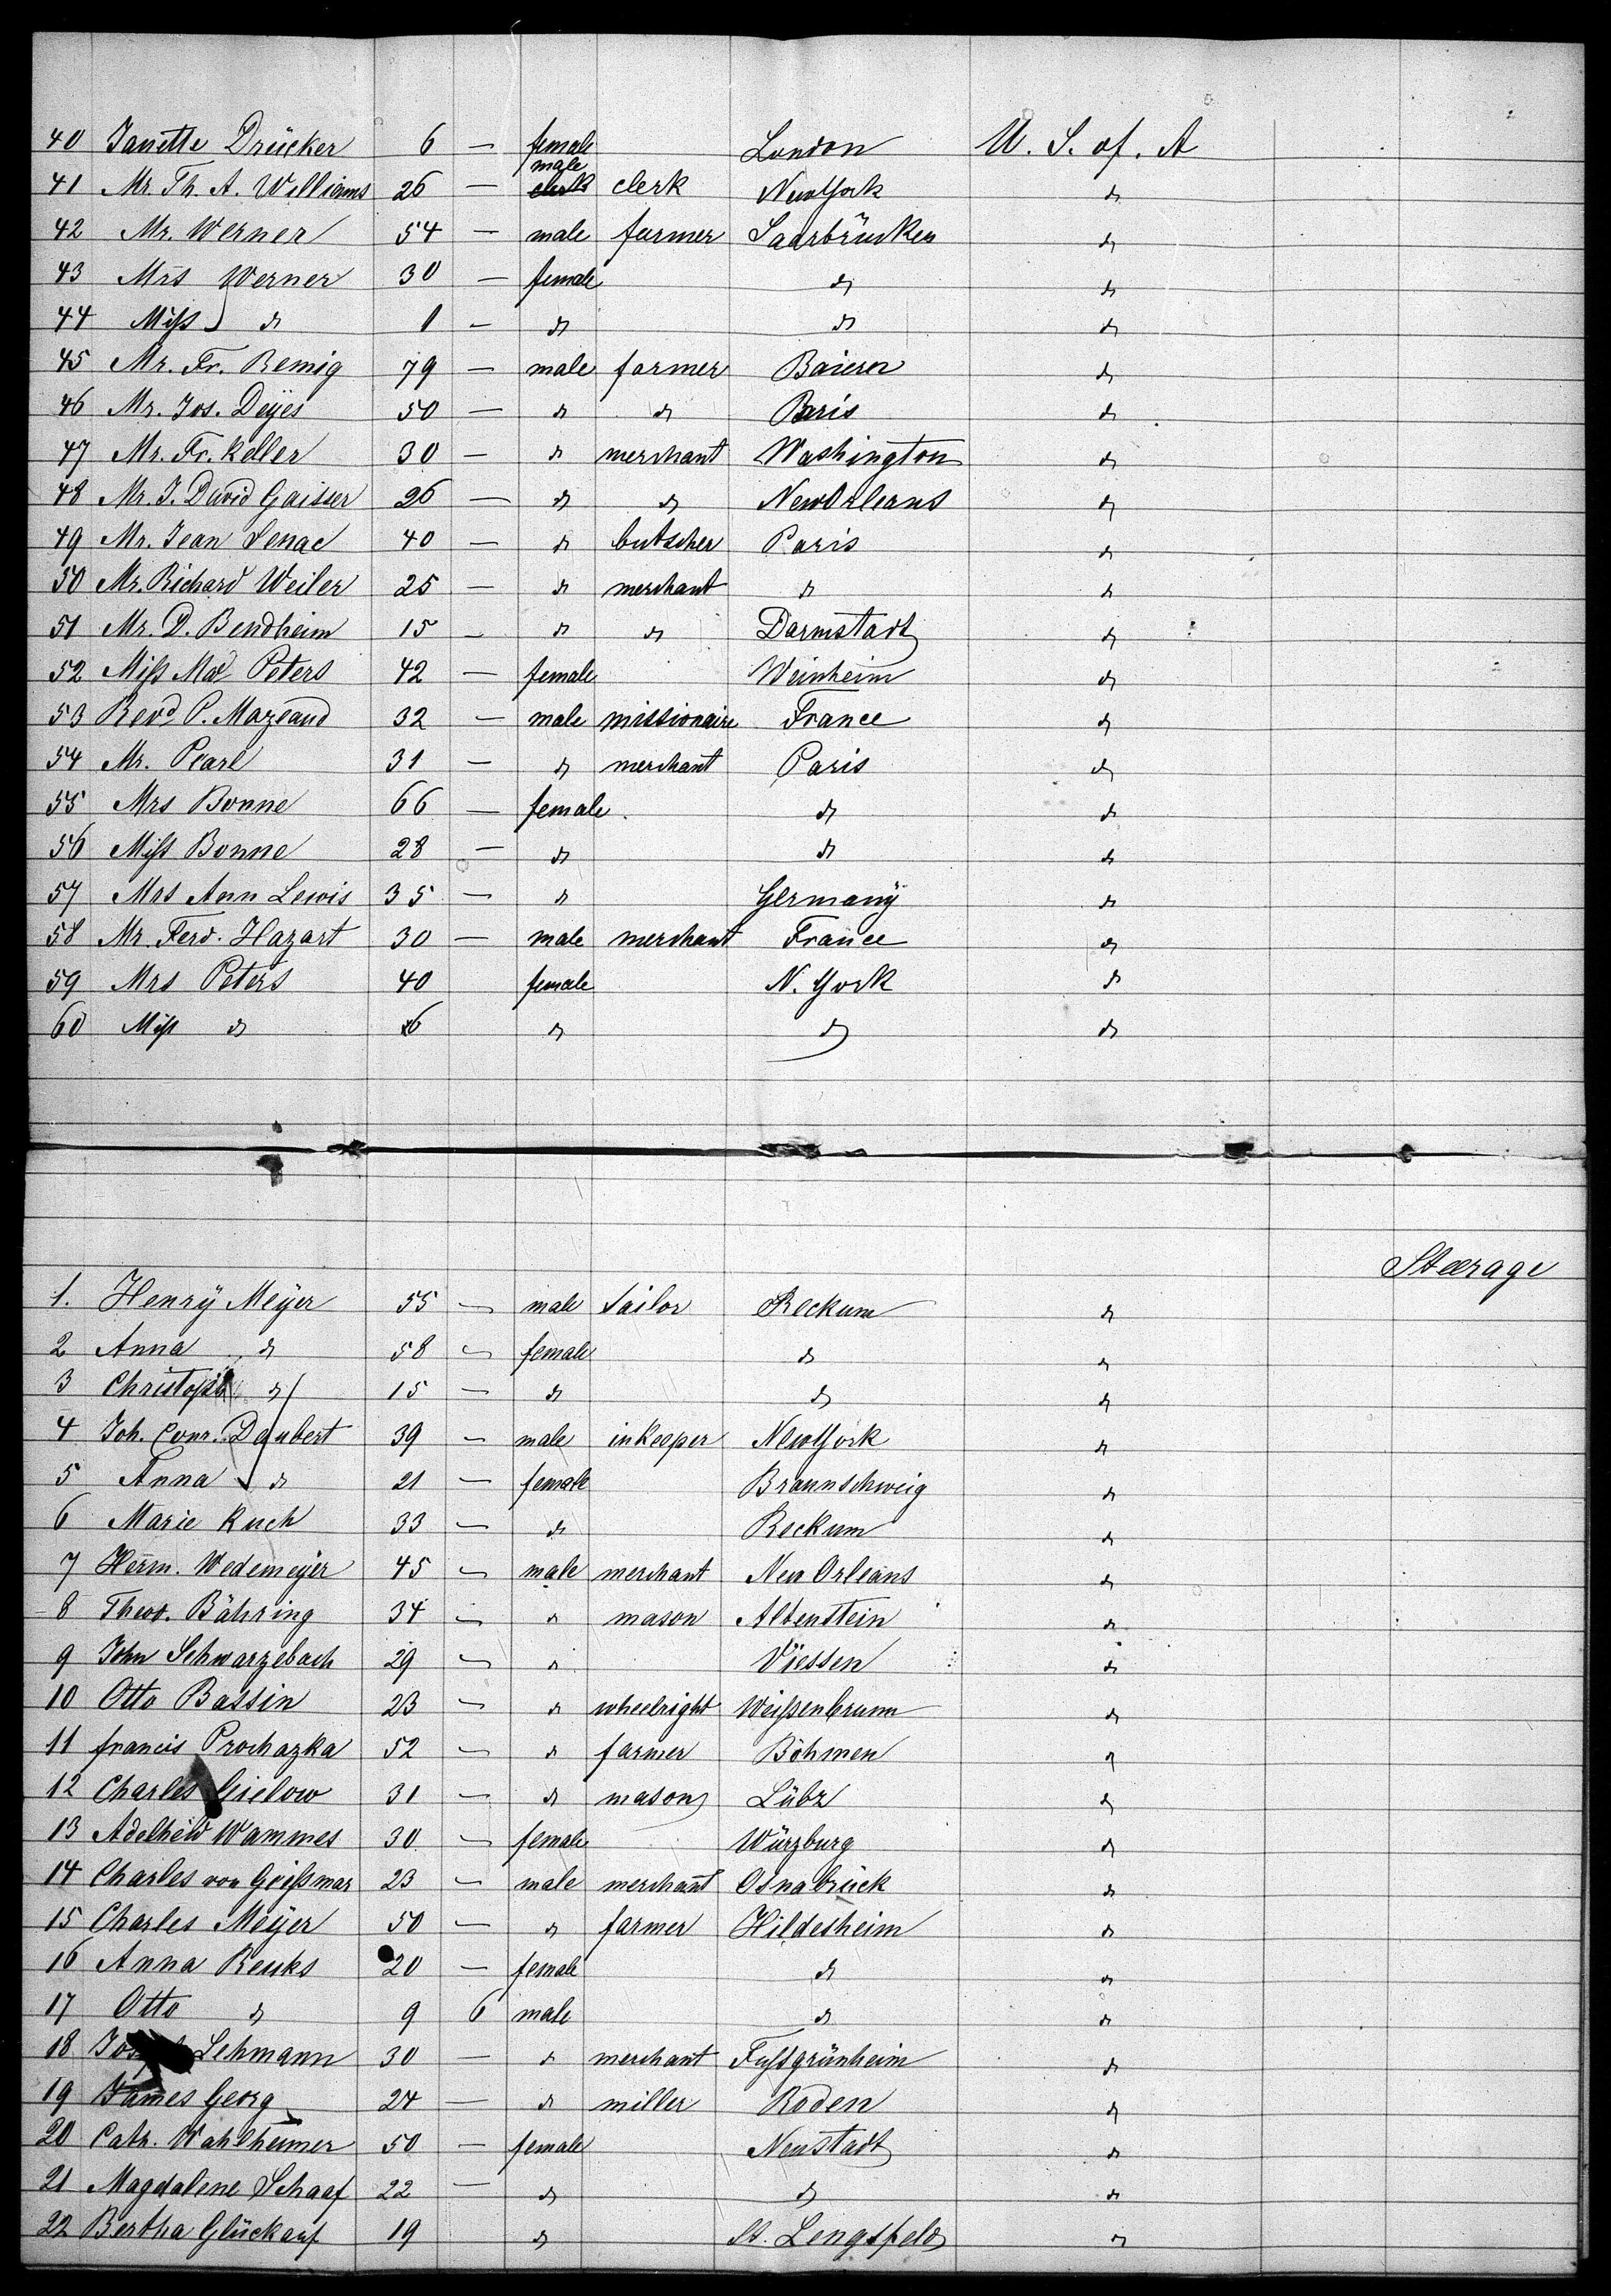 40 Janette Drücker 6 — female London U. S. of. A
41 Mr. Th. A. Williams 26 — clerk male clerk NewYork do
42 Mr. Werner 54 — male farmer Saarbrücken do
43 Mrs Werner 30 — female do do
44 Miss do 1 — do do do
45 Mr. Fr. Remig 79 — male farmer Baiern do
46 Mr. Jos. Deÿes 50 — do do Paris do
47 Mr. Fr. Keller 30 — do merchant Washington do
48 Mr. J. David Gaisser 26 — do do NewOrleans do
49 Mr. Jean Senac 40 — do butscher Paris do
50 Mr. Richard Weiler 25 — do merchant do do
51 Mr. D. Bendheim 15 — do do Darmstadt do
52 Miss Peters 42 — female Weinheim do
53 Revd P. Mazeaud 32 — male missionaire France do
54 Mr. Pearl 31 — do merchant Paris do
55 Mrs Bonne 66 — female do do
56 Miss Bonne 28 — do do do
57 Mrs Ann Lewis 35 — do Germanÿ do
58 Mr. Ferd. Hazart 30 — male merchant France do
59 Mrs Peters 40 female N. York do
60 Miss do 6 do do do
Steerage
1. Henrÿ Meÿer 55 — male tailor Reckum do
2 Anna do 58 — female do do
3 Christoph do 15 — do do do
4 Joh. Conr. Daubert 39 — male inkeeper NewYork do
5 Anna do 21 — female Braunschweig do
6 Marie Ruch 33 — do Reckum do
7 Herm. Wedemeÿer 45 — male merchant New Orleans do
8 Theod. Bähring 34 — do mason Altenstein do
9 John Schwarzebach 29 — do Viessen do
10 Otto Bassin 23 — do wheelright Weissenbrunn do
11 francis Prochazka 52 — do farmer Böhmen do
12 Charles Gielow 31 — do mason Lübz do
13 Adelheid Wammes 30 — female Würzburg do
14 Charles von Geissmar 23 — male merchant Osnabrück do
15 Charles Meÿer 50 — do farmer Hildesheim do
16 Anna Reuks 20 — female do do
17 Otto do 9 6 male do do
18 Lehmann 30 — do merchant Fussgrünheim do
19 James Georg 24 — do miller Roden do
20 Cath. Wahlheimer 50 — female Neustadt do
21 Magdalene Schaaf 22 — do do do
22 Bertha Glückauf 19 do St. Lengsfeld do